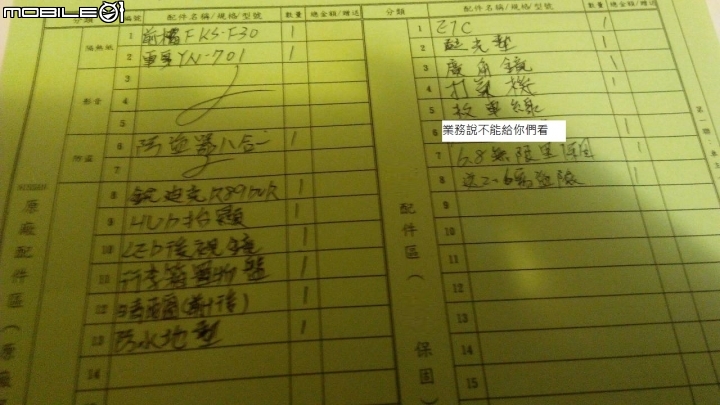 mobile01
分類 編號 配件名稱/規格/型號 數量 總金額/贈送
隔熱紙 1 前檔FKS-F30 1
2 車身YN-701 1
影音 3
4
5
防盜 6 防盜器八合一 1
7
NISSAN 原廠配件區(原廠
8
9 HUD抬頭 1
10 LED後視鏡 1
11 行李箱置物墊 1
12 晴雨窗(前+後) 1
13 防水地墊 1
14
分類 配件名稱/規格/型號 數量 總金額/贈送
1 ETC 1
2 避光墊 1
3 廣角鏡 1
4 打氣機 1
5 救車線 1
6 業務說不能給你們看
7 5.8無限里保固 1
8 送2-6萬保險 1
9
10
11
12
13
14
15
配件區(保固
第一聯: